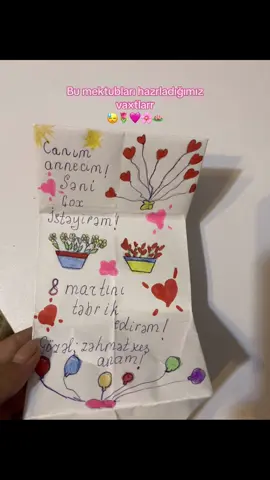 Bu mektubları hazrladiğimız
vaxtlarr
Canım
annecim!
Səni
Çox
İstəyirəm!
8 martını
təbrik
edirəm!
Gözəl, zəhmətkeş
anam!